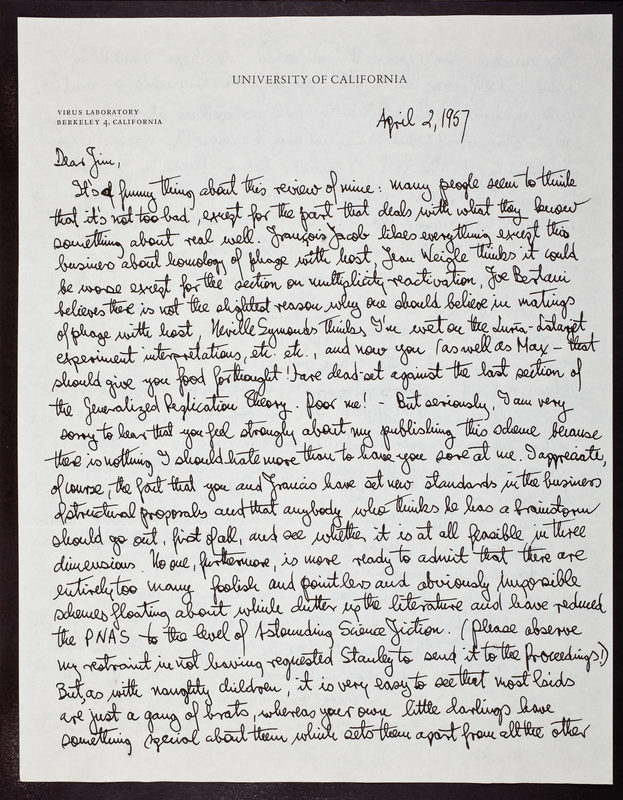 UNIVERSITY OF CALIFORNIA
VIRUS LABORATORY
BERKELEY 4, CALIFORNIA
April 2, 1957
Dear Jim,
It's a funny thing about this review of mine: many people seem to think
that it's not too bad, except for the part that deals with what they know
something about real well. François Jacob likes everything except this
business about homology of phage with host, Jean Weigle thinks it could
be worse except for the section on multiplicity-reactivation, Joe Bertani
believes there is not the slightest reason why one should believe in matings
of phage with host, Neville Symonds thinks I'm wet on the Luria-Latarjet
experiment interpretations, etc. etc., and now you (as well as Max – that
should give you food for thought!) are dead-set against the last section of
the Generalized Replication Theory. Poor me! - But seriously, I am very
sorry to hear that you feel strongly about my publishing this scheme because
there is nothing I should hate more than to have you sore at me. I appreciate,
of course, the fact that you and Francis have set new standards in the business
of structural proposals and that anybody who thinks he has a brainstorm
should go out, first of all, and see whether it is at all feasible in three
dimensions. No one, furthermore, is more ready to admit that there are
entirely too many foolish and pointless and obviously impossible
schemes floating about which clutter up the literature and have reduced
the PNAS to the level of Astounding Science Fiction. (Please observe
my restraint in not having requested Stanley to send it to the Proceedings!)
But, as with naughty children, it is very easy to see that most kids
are just a gang of brats, whereas your own little darlings have
something special about them which sets them apart from all the other